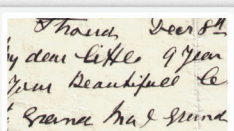 Thousd Decr 8th
my dear little 9 Year
Your Beautifull Le
Grand Ma & Grand